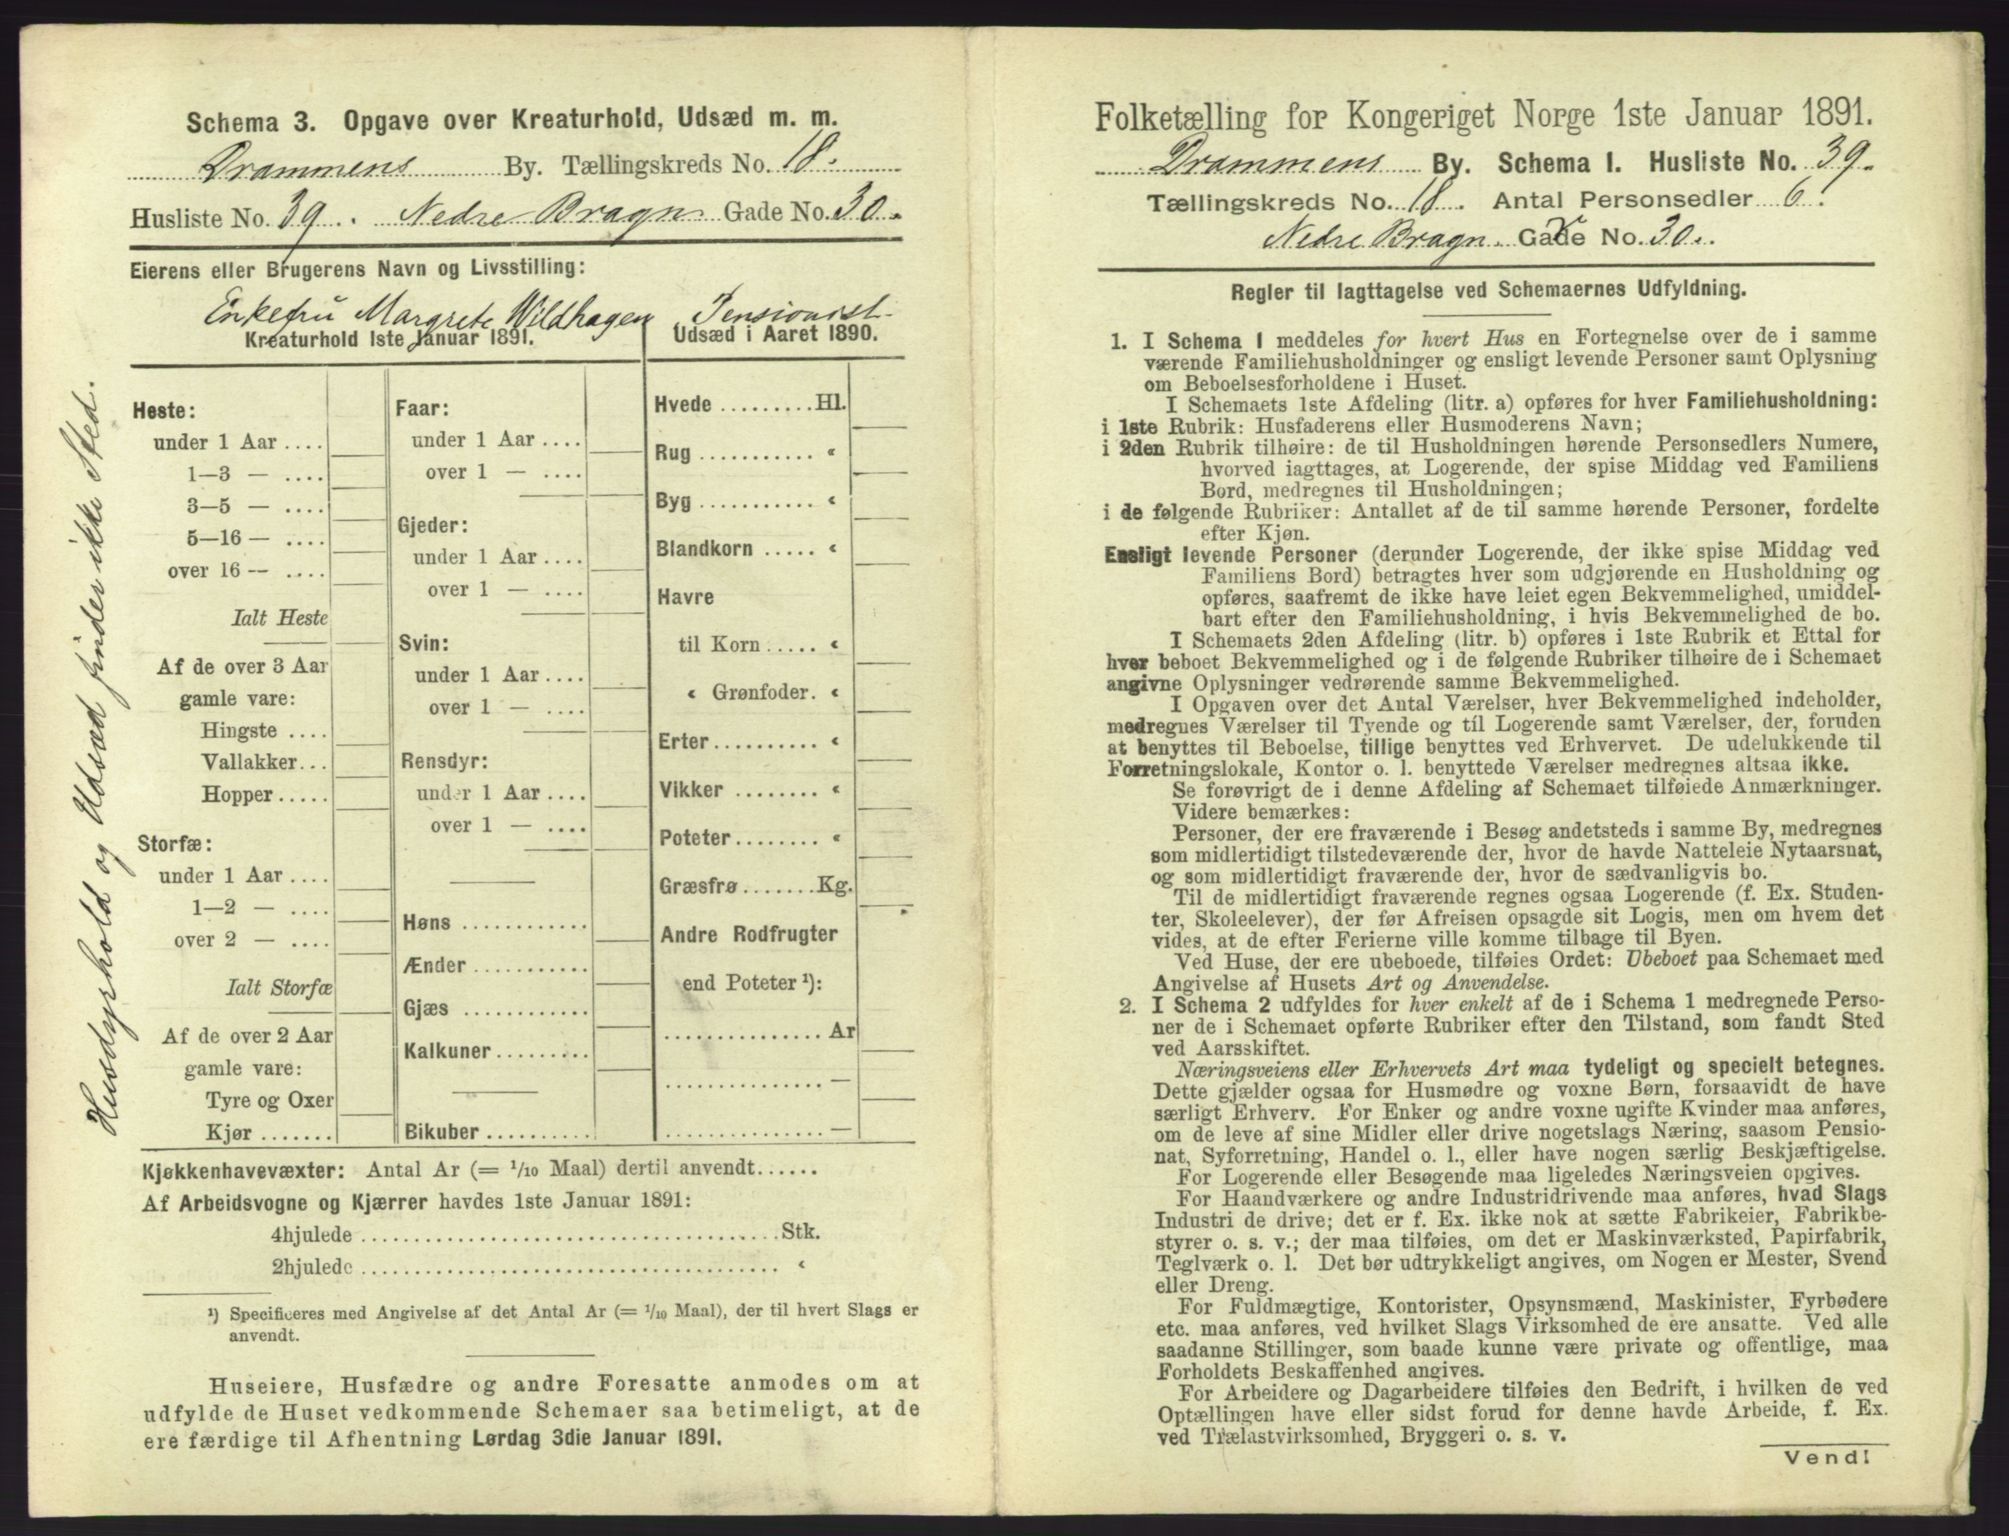 Schema 3. Opgave over Kreaturhold, Udsæd m. m.
Drammens By. Tællingskreds No. 18.
Husliste No. 39. Nedre Bragn Gade No. 30.
Eierens eller Brugerens Navn og Livsstilling:
Enkefru Margrete Wildhagen Pensionist
Kreaturhold 1ste Januar 1891.
Heste:
under 1 Aar ....
1—3 — ....
3—5 — ....
5—16 — ....
over 16 — ....
Ialt Heste
Af de over 3 Aar
gamle vare:
Hingste ....
Vallakker...
Hopper .....
Storfæ:
under 1 Aar ....
1—2 — ....
over 2 — ....
Ialt Storfæ
Af de over 2 Aar
gamle vare:
Tyre og Oxer
Kjør .......
Faar:
under 1 Aar ....
over 1 — ....
Gjeder:
under 1 Aar ....
over 1 — ....
Svin:
under 1 Aar ....
over 1 — ....
Rensdyr:
under 1 Aar ....
over 1 — ....
Høns ............
Ænder ...........
Gjæs ............
Kalkuner.........
Bikuber ..........
Udsæd i Aaret 1890.
Hvede .........Hl.
Rug ........... “
Byg ........... “
Blandkorn ..... “
Havre
til Korn ..... “
“ Grønfoder. “
Erter.......... “
Vikker ........ “
Poteter........ “
Græsfrø .......Kg.
Andre Rodfrugter
end Poteter ¹):
............... Ar
............... —
............... —
Husdyrhold og Udsæd findes ikke Sted.
Kjøkkenhavevæxter: Antal Ar (= 1/10 Maal) dertil anvendt......
Af Arbeidsvogne og Kjærrer havdes 1ste Januar 1891:
4hjulede ........................................Stk.
2hjulede ........................................ “
¹) Specificeres med Angivelse af det Antal Ar (= 1/10 Maal), der til hvert Slags er
anvendt.
Huseiere, Husfædre og andre Foresatte anmodes om at
udfylde de Huset vedkommende Schemaer saa betimeligt, at de
ere færdige til Afhentning Lørdag 3die Januar 1891.
Folketælling for Kongeriget Norge 1ste Januar 1891.
Drammens By. Schema 1. Husliste No. 39.
Tællingskreds No. 18. Antal Personsedler 6.
Nedre Bragn. Gade No. 30.
Regler til Iagttagelse ved Schemaernes Udfyldning.
1. I Schema 1 meddeles for hvert Hus en Fortegnelse over de i samme
værende Familiehusholdninger og ensligt levende Personer samt Oplysning
om Beboelsesforholdene i Huset.
I Schemaets 1ste Afdeling (litr. a) opføres for hver Familiehusholdning:
i 1ste Rubrik: Husfaderens eller Husmoderens Navn;
i 2den Rubrik tilhøire: de til Husholdningen hørende Personsedlers Numere,
hvorved iagttages, at Logerende, der spise Middag ved Familiens
Bord, medregnes til Husholdningen;
i de følgende Rubriker: Antallet af de til samme hørende Personer, fordelte
efter Kjøn.
Ensligt levende Personer (derunder Logerende, der ikke spise Middag ved
Familiens Bord) betragtes hver som udgjørende en Husholdning og
opføres, saafremt de ikke have leiet egen Bekvemmelighed, umiddel-
bart efter den Familiehusholdning, i hvis Bekvemmelighed de bo.
I Schemaets 2den Afdeling (litr. b) opføres i 1ste Rubrik et Ettal for
hver beboet Bekvemmelighed og i de følgende Rubriker tilhøire de i Schemaet
angivne Oplysninger vedrørende samme Bekvemmelighed.
I Opgaven over det Antal Værelser, hver Bekvemmelighed indeholder,
medregnes Værelser til Tyende og til Logerende samt Værelser, der, foruden
at benyttes til Beboelse, tillige benyttes ved Erhvervet. De udelukkende til
Forretningslokale, Kontor o. l. benyttede Værelser medregnes altsaa ikke.
Se forøvrigt de i denne Afdeling af Schemaet tilføiede Anmærkninger.
Videre bemærkes:
Personer, der ere fraværende i Besøg andetsteds i samme By, medregnes
som midlertidigt tilstedeværende der, hvor de havde Natteleie Nytaarsnat,
og som midlertidigt fraværende der, hvor de sædvanligvis bo.
Til de midlertidigt fraværende regnes ogsaa Logerende (f. Ex. Studen-
ter, Skoleelever), der før Afreisen opsagde sit Logis, men om hvem det
vides, at de efter Ferierne ville komme tilbage til Byen.
Ved Huse, der ere ubeboede, tilføies Ordet: Ubeboet paa Schemaet med
Angivelse af Husets Art og Anvendelse.
2. I Schema 2 udfyldes for hver enkelt af de i Schema 1 medregnede Perso-
ner de i Schemaet opførte Rubriker efter den Tilstand, som fandt Sted
ved Aarsskiftet.
Næringsveiens eller Erhvervets Art maa tydeligt og specielt betegnes.
Dette gjælder ogsaa for Husmødre og voxne Børn, forsaavidt de have
særligt Erhverv. For Enker og andre voxne ugifte Kvinder maa anføres,
om de leve af sine Midler eller drive nogetslags Næring, saasom Pensio-
nat, Syforretning, Handel o. l., eller have nogen særlig Beskjæftigelse.
For Logerende eller Besøgende maa ligeledes Næringsveien opgives.
For Haandværkere og andre Industridrivende maa anføres, hvad Slags
Industri de drive; det er f. Ex. ikke nok at sætte Fabrikeier, Fabrikbe-
styrer o. s. v.; der maa tilføies, om det er Maskinværksted, Papirfabrik,
Teglværk o. l. Det bør udtrykkeligt angives, om Nogen er Mester, Svend
eller Dreng.
For Fuldmægtige, Kontorister, Opsynsmænd, Maskinister, Fyrbødere
etc. maa anføres, ved hvilket Slags Virksomhed de ere ansatte. Ved alle
saadanne Stillinger, som baade kunne være private og offentlige, maa
Forholdets Beskaffenhed angives.
For Arbeidere og Dagarbeidere tilføies den Bedrift, i hvilken de ved
Optællingen have eller sidst forud for denne havde Arbeide, f. Ex.
ved Trælastvirksomhed, Bryggeri o. s. v.
Vend!